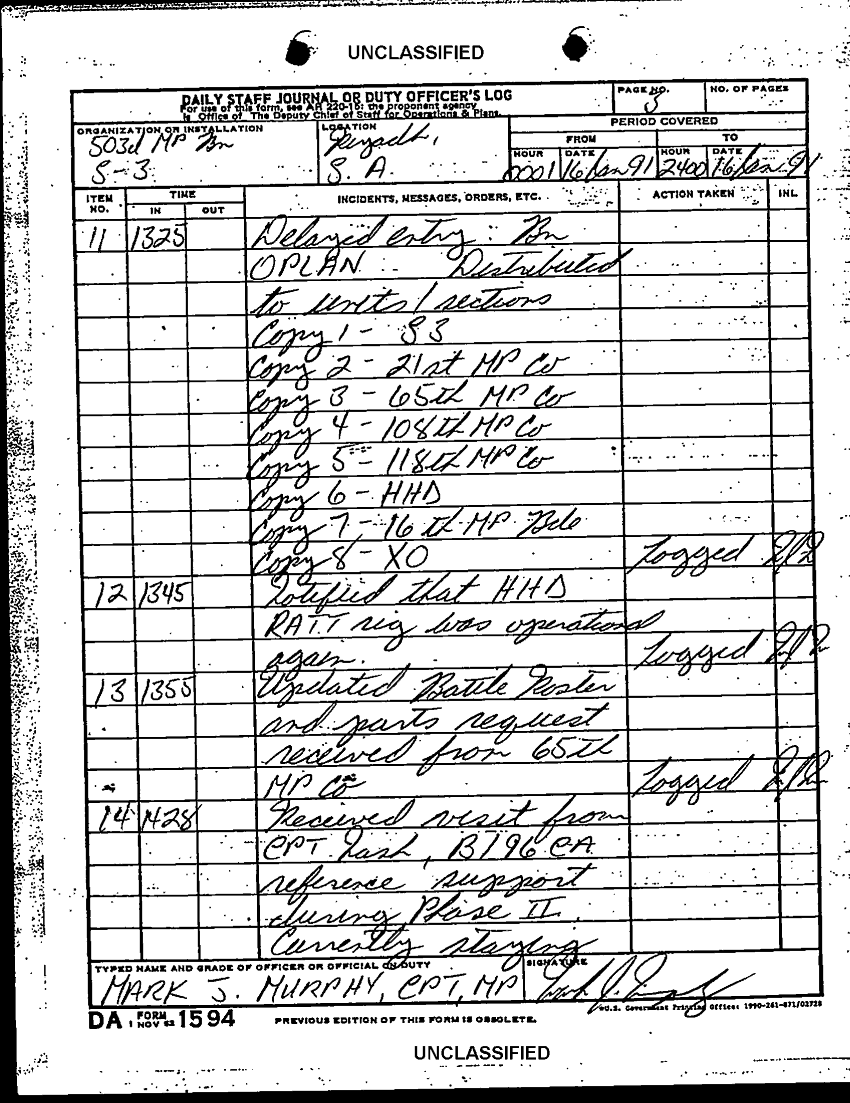 UNCLASSIFIED
DAILY STAFF JOURNAL OR DUTY OFFICER'S LOG
For use of this form, see AR 220-15; the proponent agency
is Office of The Deputy Chief of Staff for Operations & Plans.
PAGE NO.
3
NO. OF PAGES
ORGANIZATION OR INSTALLATION
503d MP Bn
S-3
LOCATION
Riyadh,
S. A.
PERIOD COVERED
FROM
TO
HOUR
DATE
HOUR
DATE
0001
16 Jan 91
2400
16 Jan 91
ITEM NO.
TIME
IN
OUT
INCIDENTS, MESSAGES, ORDERS, ETC.
ACTION TAKEN
INL
11 1325 Delayed entry: Bn
OPLAN Distributed
to units/sections
Copy 1 - S3
Copy 2 - 21st MP Co
Copy 3 - 65th MP Co
Copy 4 - 108th MP Co
Copy 5 - 118th MP Co
Copy 6 - HHD
Copy 7 - 16th MP Bde
Copy 8 - XO Logged
12 1345 Notified that HHD
RATT rig was operational
again. Logged
13 1355 Updated Battle Roster
and parts request
received from 65th
MP Co Logged
14 1428 Received visit from
CPT Nash, B/96 CA
reference support
during Phase II.
Currently staying
TYPED NAME AND GRADE OF OFFICER OR OFFICIAL ON DUTY
MARK J. MURPHY, CPT, MP
SIGNATURE
DA FORM 1 NOV 62 1594
PREVIOUS EDITION OF THIS FORM IS OBSOLETE.
U.S. Government Printing Office: 1990-261-871/02728
UNCLASSIFIED